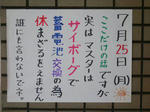 7月25日(月)
ここだけの話ですが
実はマスターは
サイボーグで
蓄電池交換の為
休まざるをえません
誰にも言わないでネ。